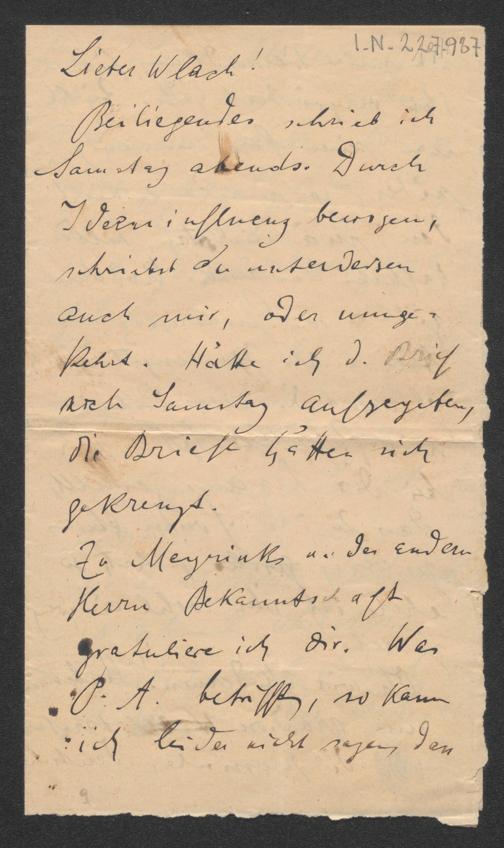 I.N. 227.987
Lieber Wlach!
Beiliegendes schrieb ich
Samstag abends. Durch
Ideeninfluenz bewogen,
schriebst du unterdessen
auch mir, oder umge-
kehrt. Hätte ich d. Brief
noch Samstag aufgegeben,
die Briefe hätten sich
gekreuzt.
Zu Meyrinks u. der andern
Herrn Bekanntschaft
gratuliere ich dir. Was
P. A. betrifft, so kann
ich leider nicht sagen, den